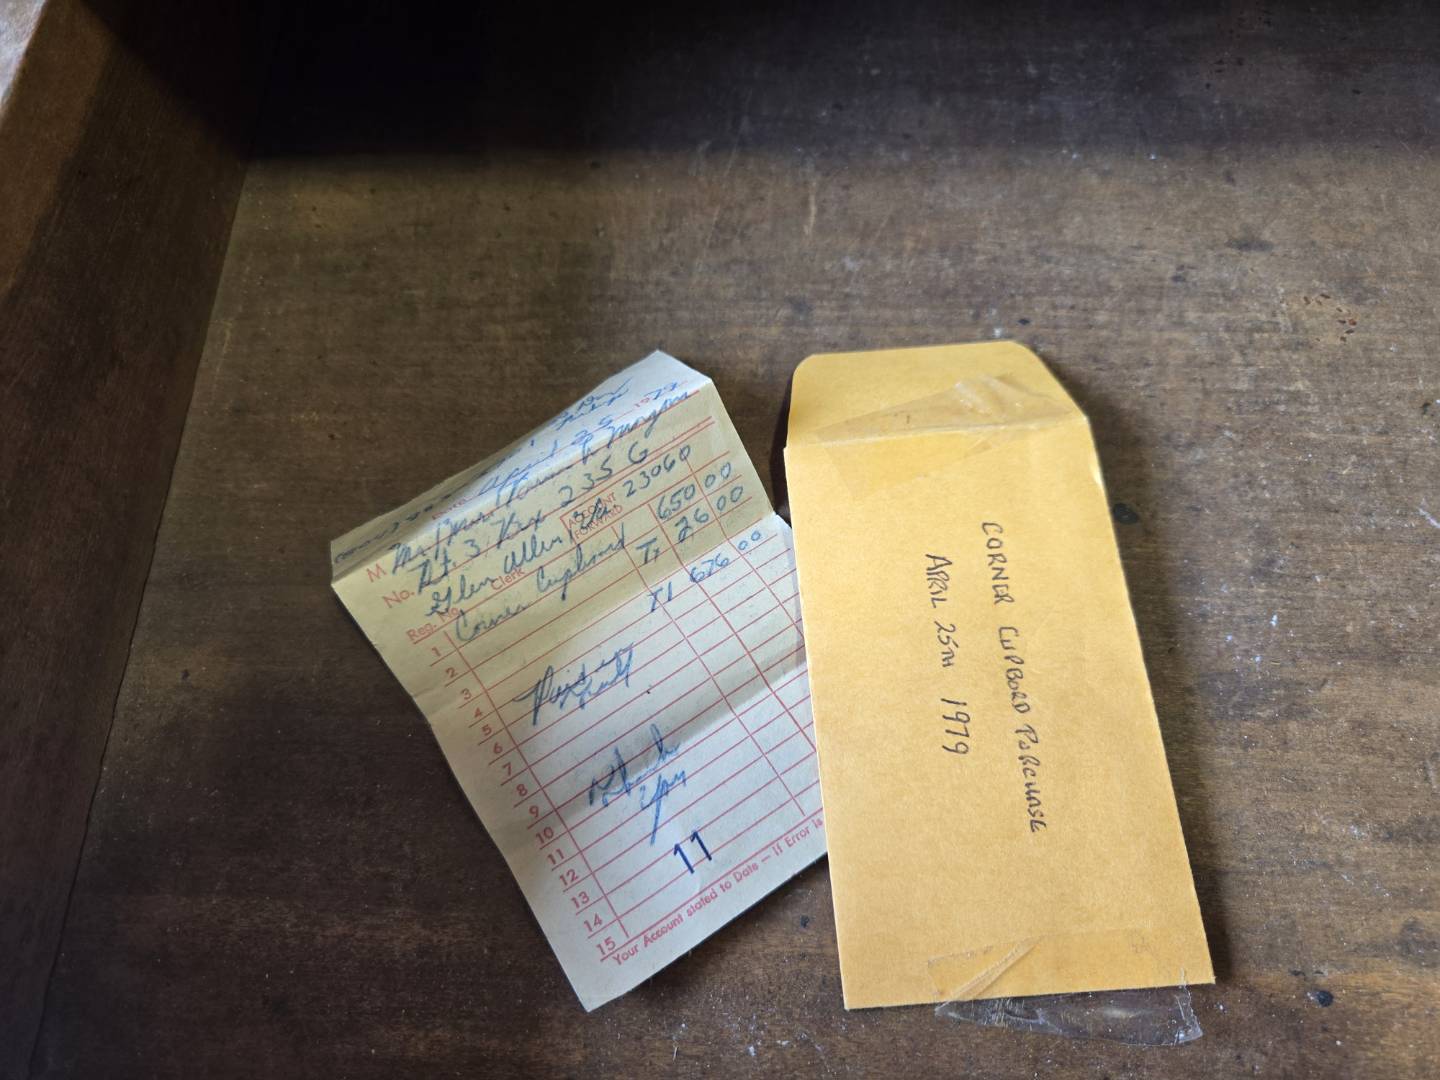 April 25 1979
M Mr/Mrs Morgan
No. Rt. 3 Box 235 G
Glen Allen, Va 23060
Reg. No. Clerk ACCOUNT FORWARD
1 Corner Cupboard 650 00
2 Tx 26 00
3
4 Tl 676 00
5
6 Paid in
7 full
8
9
10
11
12
13
14
15
11
Your Account stated to Date — If Error is
CORNER CUPBORD PURCHASE
APRIL 25TH 1979